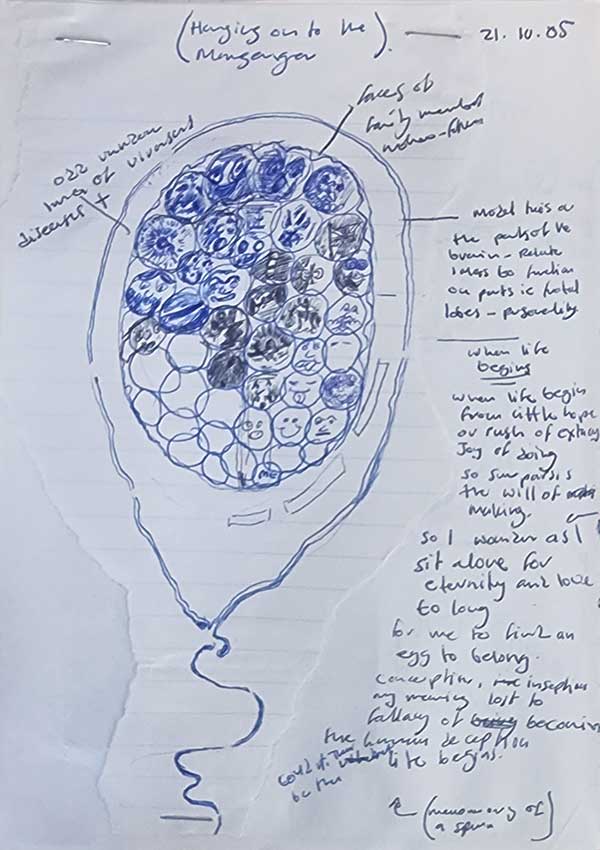 (Hanging on to the
21.10.05
faces of
family members
images of
diseases +
model this on
the parts of the
brain - Relate
images to function
on parts ie frontal
lobes - personality
when life
begins
when life begins
from little hope
or rush of
Joy of doing
so surpasses
the will of
making.
so I wonder as I
sit alone for
eternity and
to long
for me to find an
egg to belong.
conception,
my meaning lost to
fallacy of becoming
the human deception
life begins.
could it
be the
(memory of
a sperm
me